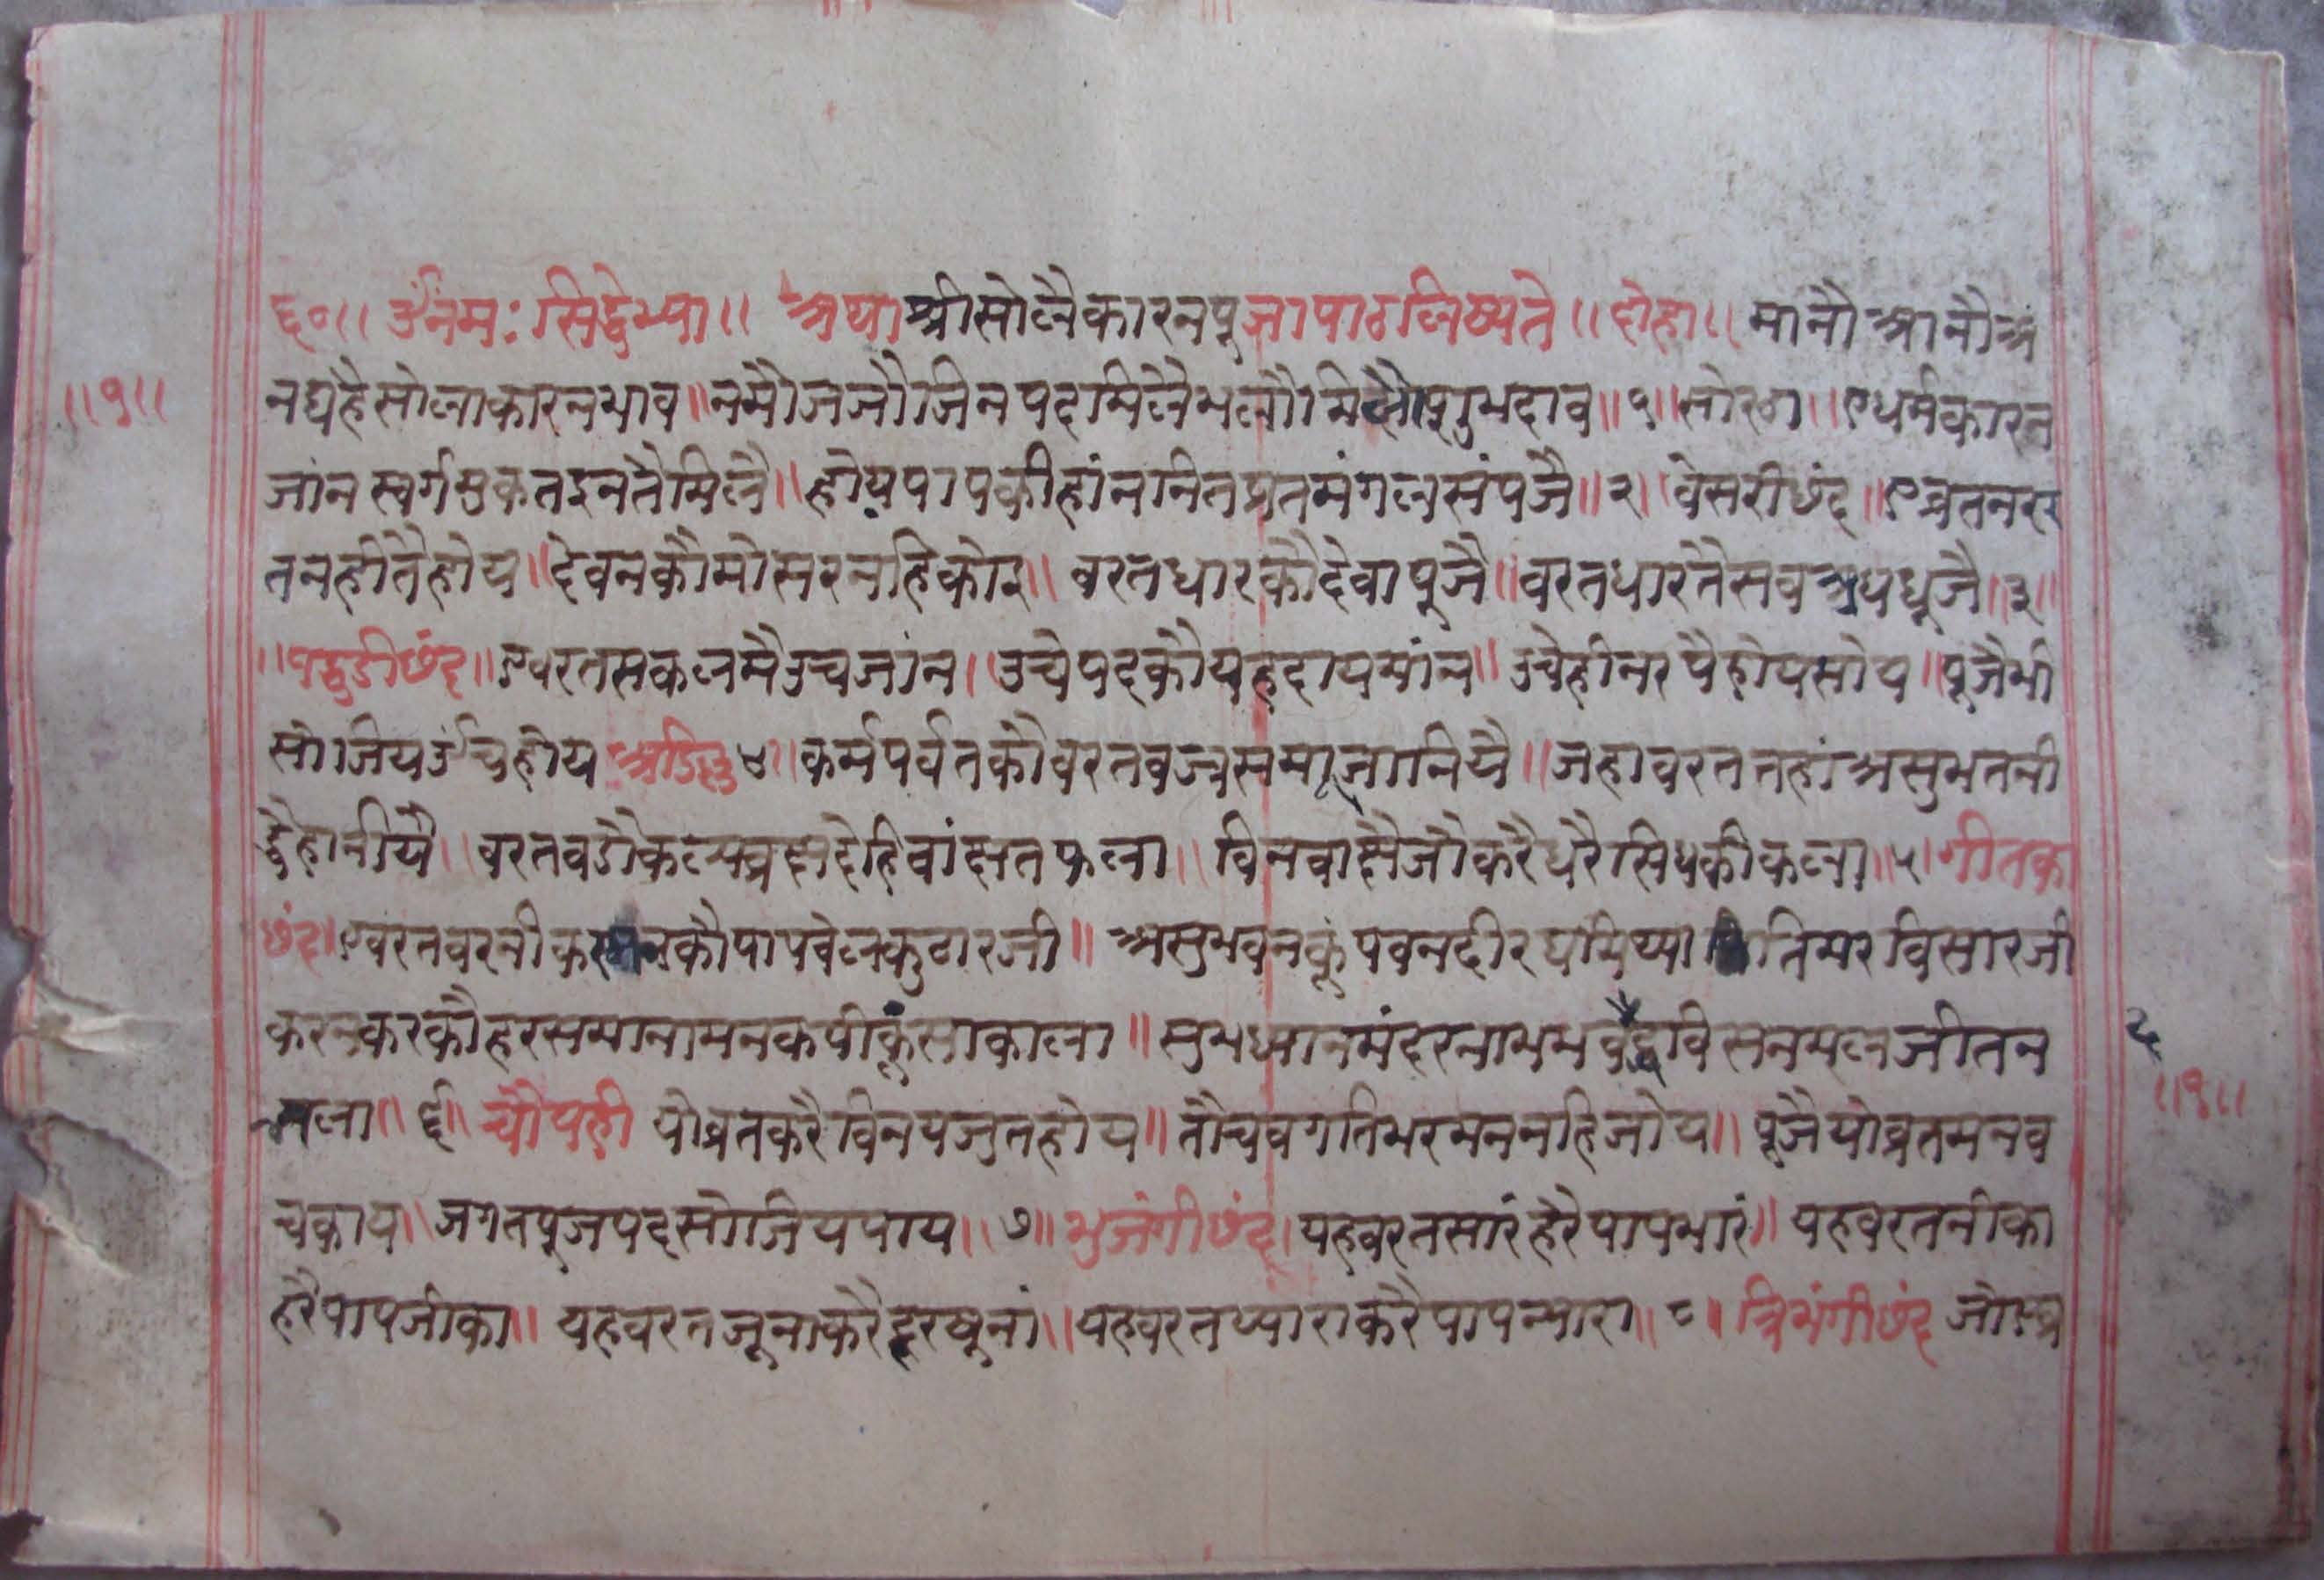 ६०॥ ॐनमः सिद्धेभ्या॥ अथा श्रीसोलैकारनपूजापाठलिख्यते॥ दोहा॥ मानौ आनौ अ
॥१॥
नद्यहैसोलाकारनभाव॥ नमौजजौजिनपदमिलैभलौमिलौसुभदाव॥१॥ सोरठा॥ एधर्मकारन
जांन स्वर्गमुकतइनतैमिलै॥ होयपापकीहांननितप्रतमंगलसंपजै॥२॥ वेसरीछंद॥ एव्रतनरत
तनहीतैहोय॥ देवनकौमोसरनहिकोइ॥ वरतधारकौदेवापूजै॥ वरतधारतैसवअघधूजै॥३॥
॥पद्धडीछंद॥ एवरतसकलमैउचजांन॥ उचेपदकौयहदायमांन॥ उचेहीनरपैहोयसोय॥ पूजैभी
सोजियऊंचहोय अडिल्ल ४॥ कर्मपर्वतकौवरतवज्रसमाजानियै॥ जहावरततहांअसुभतनी
द्वैहानीयै॥ वरतवडौकल्पव्रछदेहिवांछतफला॥ विनवाछैजौकरैधरैसिधकीकला॥५॥ गीतका
छंद॥ एवरतवरनीक कौपापवेलकुठारजी॥ असुभवनकूंपवनदीरघमिथ्या तिमरविसारजी
करनकरकौहरसमानामनकपीकूंसाकाला॥ सुभध्यानमंदरनामभ विसनमलजीतन
२
॥१॥
मला॥६॥ चौपही योव्रतकरैविनयजुतहोय॥ तौचवगतिभरमननहिजोय॥ पूजैयोव्रतमनव
चकाय॥ जगतपूजपदसोजियपाय॥७॥ भुजंगीछंद॥ यहवरतसारंहरैपापभारं॥ यहवरतनीका
हरैपापजीका॥ यहवरतजूनाकरैदूरखूनां॥ यहवरतप्याराकरैपापन्यारा॥८॥ त्रिभंगीछंद जोएव्र